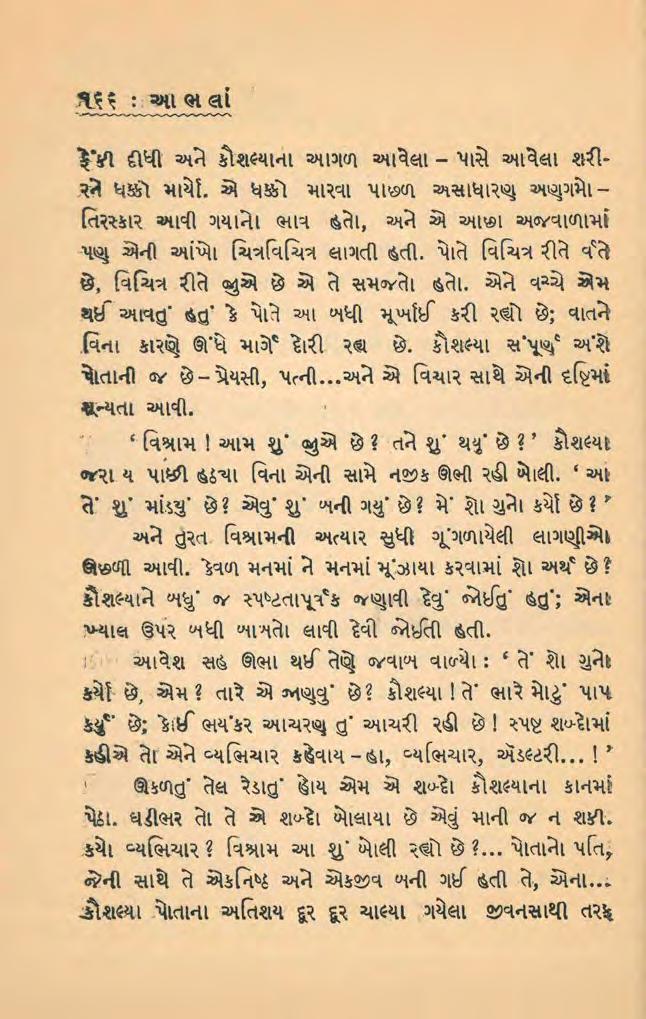 ૧૬૬ : આ ભ લાં
ફેંકી દીધી અને કૌશલ્યાના આગળ આવેલા – પાસે આવેલા શરી-
રને ધક્કો માર્યો. એ ધક્કો મારવા પાછળ અસાધારણ અણગમો –
તિરસ્કાર આવી ગયાનો ભાવ હતો, અને એ આછા અજવાળામાં
પણ એની આંખો ચિત્રવિચિત્ર લાગતી હતી. પોતે વિચિત્ર રીતે વર્તે
છે, વિચિત્ર રીતે જુએ છે એ તે સમજતો હતો. એને વચ્ચે એમ
થઈ આવતું હતું કે પોતે આ બધી મૂર્ખાઈ કરી રહ્યો છે; વાતને
વિના કારણે ઊંધે માર્ગે દોરી રહ્ય છે. કૌશલ્યા સંપૂર્ણ અંશે
પોતાની જ છે – પ્રેયસી, પત્ની...અને એ વિચાર સાથે એની દૃષ્ટિમાં
શૂન્યતા આવી.
‘ વિશ્રામ ! આમ શું જુએ છે? તને શું થયું છે ?’ કૌશલ્યા
જરા ય પાછી હઠ્યા વિના એની સામે નજીક ઊભી રહી બોલી. ‘ આ
તેં શું માંડ્યું છે? એવું શું બની ગયું છે? મેં શો ગુનો કર્યો છે ?’
અને તુરત વિશ્રામની અત્યાર સુધી ગૂંગળાયેલી લાગણીઓ
ઊછળી આવી. કેવળ મનમાં ને મનમાં મૂંઝાયા કરવામાં શો અર્થ છે?
કૌશલ્યાને બધું જ સ્પષ્ટતાપૂર્વક જણાવી દેવું જોઈતું હતું; એના
ખ્યાલ ઉપર બધી બાબતો લાવી દેવી જોઈતી હતી.
આવેશ સહ ઊભા થઈ તેણે જવાબ વાળ્યો : ‘ તેં શો ગુનો
કર્યો છે, એમ? તારે એ જાણવું છે? કૌશલ્યા ! તેં ભારે મોટું પાપ
કર્યું છે; કોઈ ભયંકર આચરણ તું આચરી રહી છે ! સ્પષ્ટ શબ્દોમાં
કહીએ તો એને વ્યભિચાર કહેવાય – હા, વ્યભિચાર, ઍડલ્ટરી... !’
ઊકળતું તેલ રેડાતું હોય એમ એ શબ્દો કૌશલ્યાના કાનમાં
પેઠા. ઘડીભર તો તે એ શબ્દો બોલાયા છે એવું માની જ ન શકી.
કયો વ્યભિચાર? વિશ્રામ આ શું બોલી રહ્યો છે ?... પોતાનો પતિ,
જેની સાથે તે એકનિષ્ઠ અને એકજીવ બની ગઈ હતી તે, એના...
કૌશલ્યા પોતાના અતિશય દૂર દૂર ચાલ્યા ગયેલા જીવનસાથી તરફ